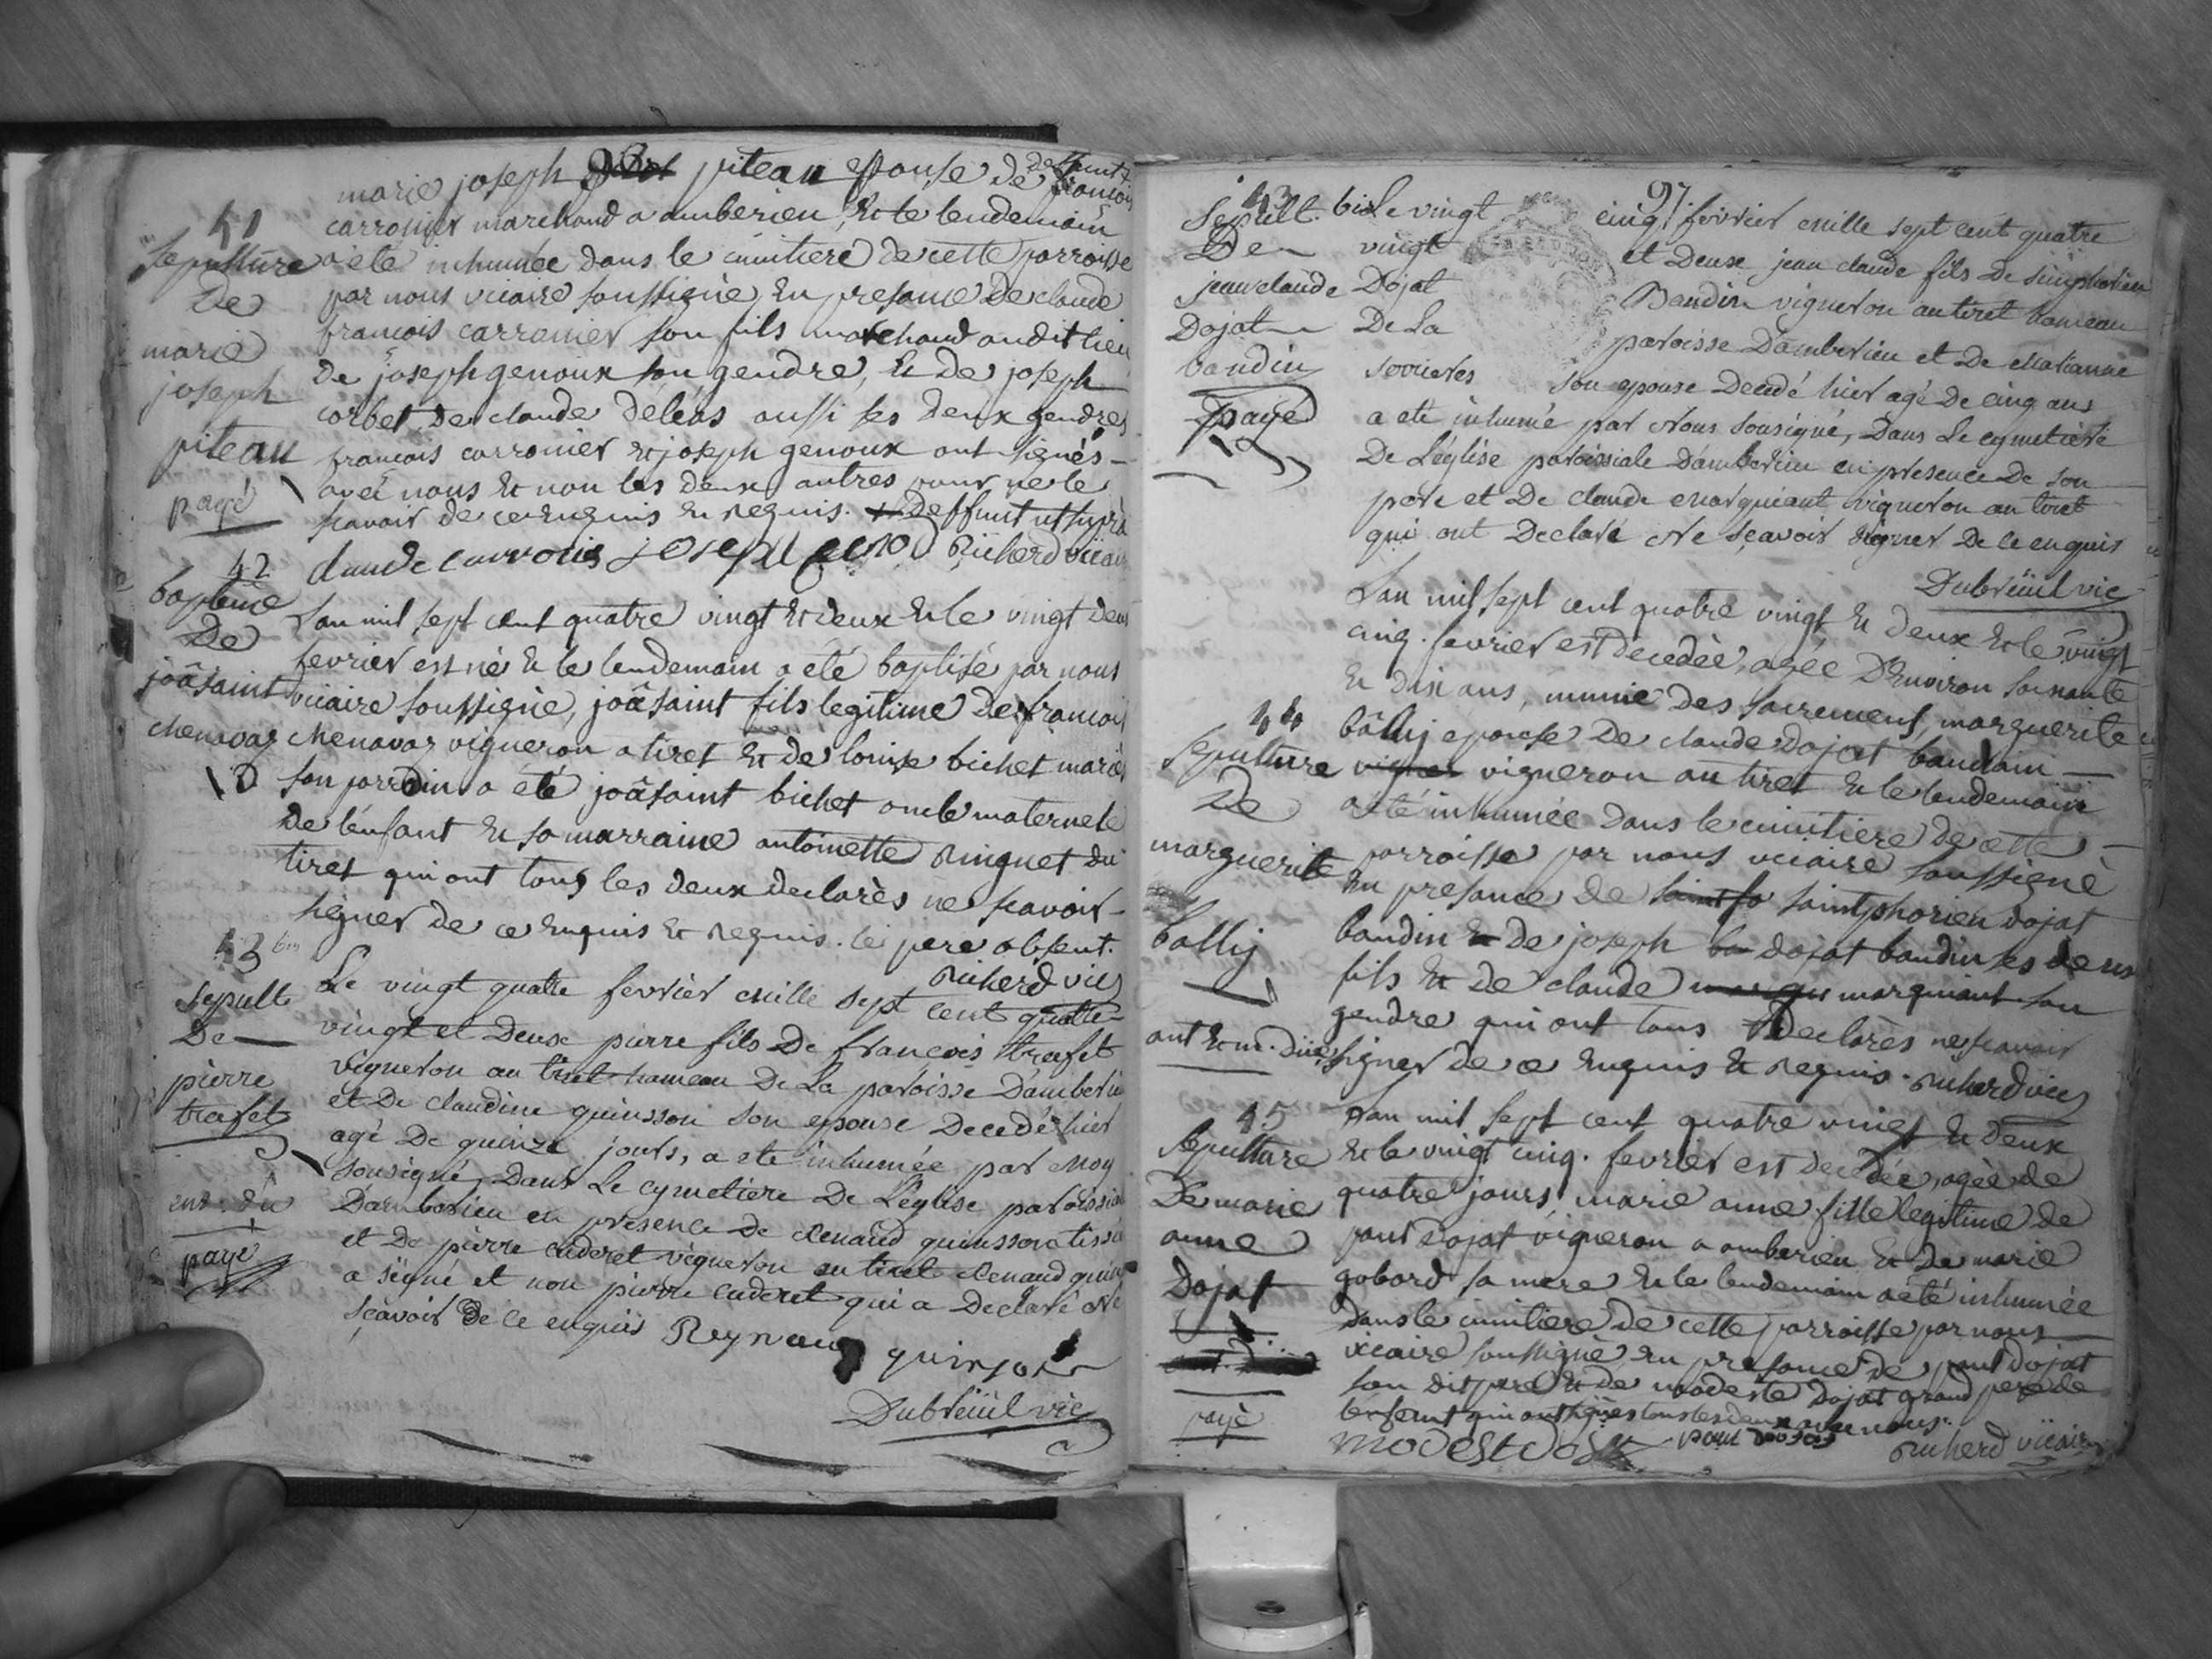 marie joseph piteau epouse de deffunt francois
41
carronier marchand a amberieu, Et le lendemain
Sepulture
a été inhumée dans le cimitiere de cette parroisse
De
par nous vicaire soussigné, En presance de claude
marie
francois carronier son fils marchand audit lieu
joseph
De joseph genoux son gendre, Et de joseph
corbet, De claude deleas aussi ses deux gendres
piteau
francois carronier Et joseph genoux ont signés
avec nous Et non les deux autres pour ne le
payé
scavoir de ce Enquis Et Requis. Deffunt ut supra
claude carronier joseph geno Richerd vicaire
42
baptême
De
joâsaint
chenavaz
L'an mil sept cent quatre vingt Et deux Et le vingt deux
fevrier est né Et le lendemain a été baptisé par nous
vicaire soussigné, joâsaint fils legitime de francois
chenavaz vigneron a tiret Et de louise bichet mariés
son parrain a été joâsaint bichet oncle maternele
De lenfant Et sa marraine antoinette Ringuet du
tiret qui ont tous les deux declarès ne scavoir
signer de ce Enquis Et Requis. le pere absent.
Richerd vic
43 bis
Sepult
De
pierre
trafet
Le vingt quatre fevrier mille sept cent quatre
vingt et deux pierre fils De francois trafet
vigneron au tiret hameau De La paroisse D'amberieu
et De claudine quinsson son epouse Decedé hier
agé De quinze jours, a eté inhumée par moy
sousigné, Dans Le cymetiere De L'eglise paroissiale
ent. dû
D'amberieu en presence de Renaud quinsson tissier
payé
et De pierre cuderet vigneron au tiret Renaud quins
a signé et non pierre cuderet qui a Declaré Ne
sçavoir De ce enquis Reynaud quinson
Dubreüil vic
97
43 bis
Sepult.
De
jean claude
Dojat
baudin
payé
Le vingt cinq fevrier mille sept cent quatre
vingt et Deux jean claude fils De simphorien
Dojat Baudin vigneron au tiret hameau
De La paroisse D'amberieu et De Marianne
serrieres son epouse Decedé hier agé De cinq ans
a eté inhumé par Nous sousigné, Dans Le cymetiere
De L'église paroissiale D'amberieu en presence De son
pere et De claude marguiant vigneron au tiret
qui ont Declaré Ne sçavoir signer De ce enquis
Dubreüil vic
44
Sepulture
De
marguerite
bally
L'an mil sept cent quatre vingt Et deux Et le vingt
cinq. fevrier est decedèe, agée D'Environ soixante
Et dix ans, munie Des sacrements, marguerite
bâlly epouse De claude Dojat baudain
vigneron au tiret Et le lendemain
a été inhumée Dans le cimitiere de cette
parroisse par nous vicaire soussigné
En presance de saintphorien dojat
baudin de joseph dojat baudin ses deux
fils Et De claude marguiant son
gendre qui ont tous Declarès ne scavoir
signer de ce Enquis Et Requis. Richerd vic
45
Sepulture
De marie
anne
Dojat
payé
L'an mil sept cent quatre vingt Et deux
Et le vingt cinq. fevrier est decedée, agèe de
quatre jours, marie anne fille legitime de
paul Dojat vigneron a amberieu Et De marie
gobord sa mere Et le lendemain a été inhumée
Dans le cimitiere de cette parroisse par nous
vicaire soussigné, En presance de paul dojat
son dit pere Et de modeste Dojat grand pere de
lenfant qui ont signès tous les deux avec nous.
modest dojat paul dojat Richerd vicaire